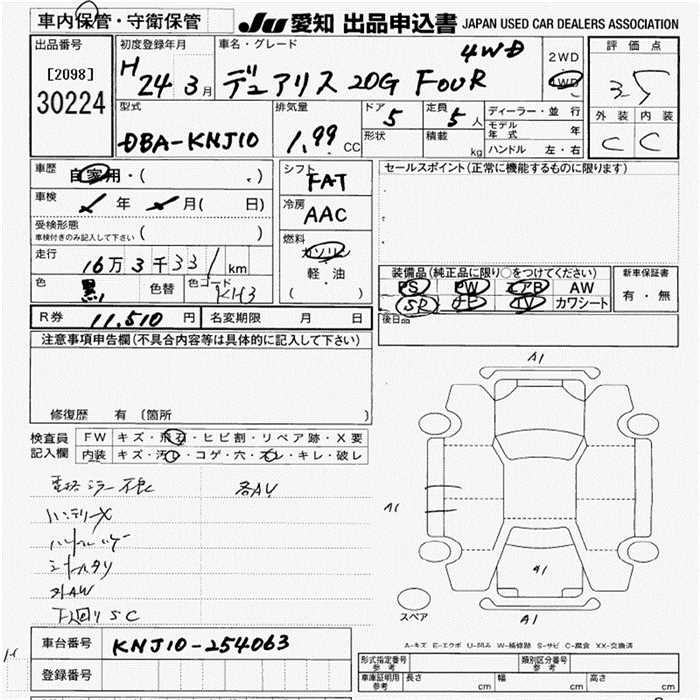 車内保管・守衛保管
JU 愛知 出品申込書 JAPAN USED CAR DEALERS ASSOCIATION
出品番号
[2098]
30224
初度登録年月
H 24 3月
車名・グレード
デュアリス 20G FouR 4WD
2WD
4WD
評価点
3.5
外装 内装
C C
型式
DBA-KNJ10
排気量
1.99 CC
ドア
5
定員
5人
形状
積載
kg
ディーラー・並行
モデル年式 年
ハンドル 左・右
車歴
自家用・( )
車検
年 月( 日)
受検形態
車検付きのみ記入して下さい ( )
走行
16万3千331km
色
黒
色替
色コード
KH3
シフト
FAT
冷房
AAC
燃料
ガソリン
軽・油
( )
セールスポイント(正常に機能するものに限ります)
装備品(純正品に限り○をつけてください)
PS PW エアB AW
SR ナビ TV カワシート
新車保証書
有・無
後日品
R券 11,510 円
名変期限 月 日
注意事項申告欄(不具合内容等は具体的に記入して下さい)
修復歴 有 (箇所 )
検査員記入欄
FW キズ・飛石・ヒビ割・リペア跡・X要
内装 キズ・汚レ・コゲ・穴・スレ・キレ・破レ
ミラー不良
各AU
下回りSC
A1
A1
A1
A1
スペア
A-キズ E-エクボ U-凹み W-補修跡 S-サビ C-腐食 XX-交換済
車台番号 KNJ10-254063
登録番号
形式指定番号
参考
類別区分番号
参考
車庫証明用
参考
長さ cm 幅 cm 高さ cm